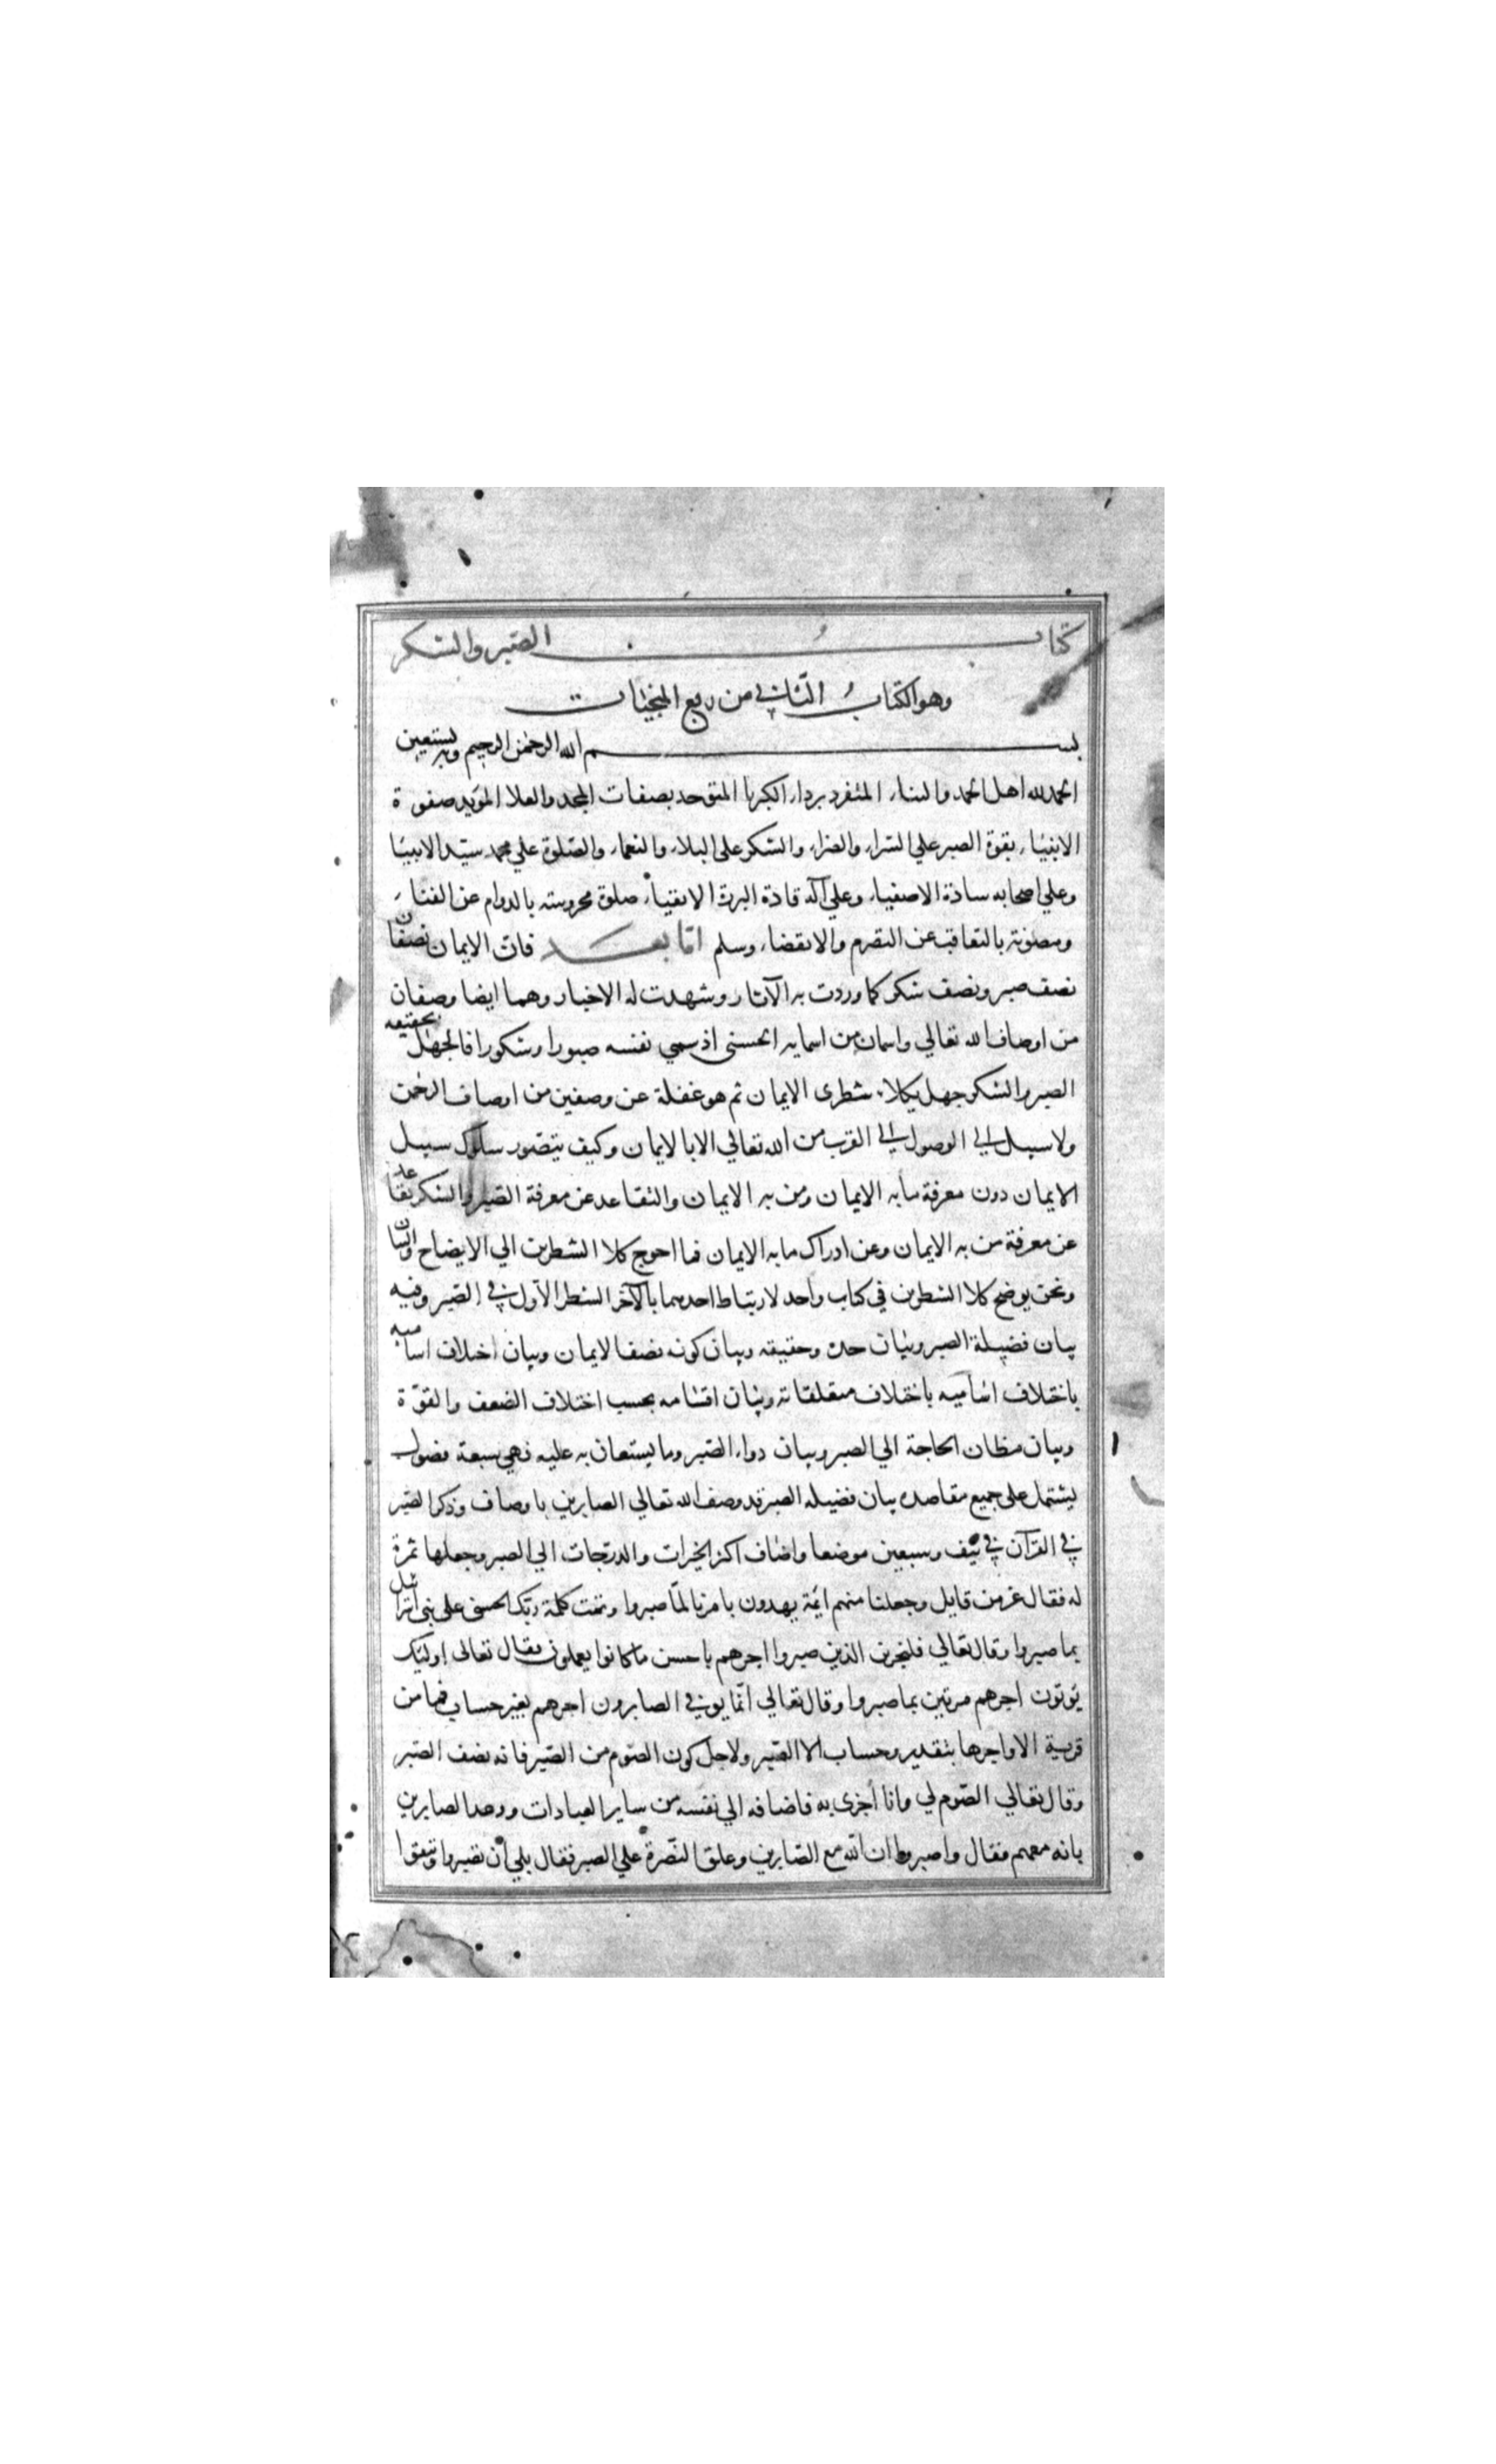 كتاب الصبر والشكر
وهو الكتاب الثاني من ربع المنجيات
بسم الله الرحمن الرحيم وبه نستعين
الحمد لله اهل الحمد والثناء المتفرد برداء الكبريا المتوحد بصفات المجد والعلا المؤيد صفوة
الانبياء بقوة الصبر علي السراء والضراء والشكر على البلاء والنعماء والصلوة علي محمد سيد الانبيا
وعلي اصحابه سادة الاصفياء وعلي آله قادة البررة الاتقياء صلوة محروسة بالدوام عن الفناء
ومصونة بالتعاقب عن التصرم والانقضاء وسلم اما بعد فان الايمان نصفان
نصف صبر ونصف شكر كما وردت به الآثار وشهدت له الاخبار وهما ايضا وصفان
من اوصاف الله تعالي واسمان من اسمايه الحسنى اذ سمي نفسه صبورا وشكورا فالجهل بحقيقه
الصبر والشكر جهل بكلا شطرى الايمان ثم هو غفلة عن وصفين من اوصاف الرحمن
ولا سبيل الي الوصول الي القرب من الله تعالي الا بالايمان وكيف يتصور سلوك سبيل
الايمان دون معرفة ما به الايمان ومن به الايمان والتقاعد عن معرفة الصبر والشكر تقاعد
عن معرفة من به الايمان وعن ادراك ما به الايمان فما احوج كلا الشطرين الي الايضاح والبيان
ونحن نوضح كلا الشطرين في كتاب واحد لارتباط احدهما بالآخر الشطر الاول في الصبر وفيه
بيان فضيلة الصبر وبيان حده وحقيقته وبيان كونه نصف الايمان وبيان اختلاف اساميه
باختلاف اساميه باختلاف متعلقاته وبيان اقسامه بحسب اختلاف الضعف والقوة
وبيان مظان الحاجة الي الصبر وبيان دواء الصبر وما يستعان به عليه فهي سبعة فصول
يشتمل على جميع مقاصده بيان فضيله الصبر قد وصف الله تعالي الصابرين باوصاف وذكر الصبر
في القرآن في نيف وسبعين موضعا واضاف اكثر الخيرات والدرجات الي الصبر وجعلها ثمرة
له فقال عز من قايل وجعلنا منهم ائمة يهدون بامرنا لما صبروا وتمت كلمة ربك الحسنى على بني اسرائيل
بما صبروا وقال تعالي فلنجزين الذين صبروا اجرهم باحسن ما كانوا يعملون وقال تعالى اولئك
يؤتون اجرهم مرتين بما صبروا وقال تعالي انما يوفي الصابرون اجرهم بغير حساب فما من
قربة الا واجرها بتقدير وحساب الا الصبر ولاجل كون الصوم من الصبر فانه نصف الصبر
وقال تعالي الصوم لي وانا أجزى به فاضافه الي نفسه من ساير العبادات ووعد الصابرين
بانه معهم فقال واصبروا ان الله مع الصابرين وعلق النصرة علي الصبر فقال بلي أن تصبروا وتتقوا